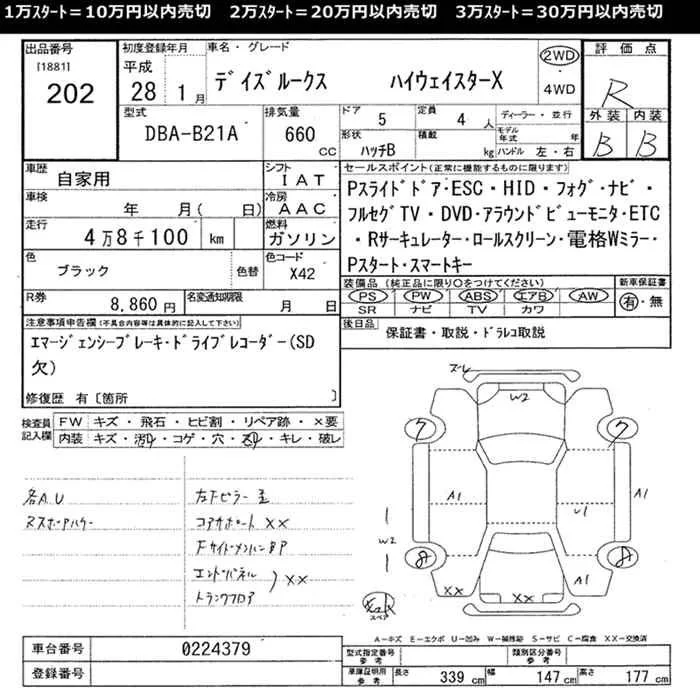 1万ｽﾀｰﾄ＝10万円以内売切　2万ｽﾀｰﾄ＝20万円以内売切　3万ｽﾀｰﾄ＝30万円以内売切
出品番号
[1881]
202
初度登録年月
平成
28 1月
車名・グレード
デイズルークス　ハイウェイスターX
2WD
・
4WD
評価点
R
外装 内装
B B
型式
DBA-B21A
排気量
660 CC
ドア
5
定員
4 人
形状
ハッチB
積載
kg
ディーラー・並行
モデル年式 年
ハンドル 左・右
車歴
自家用
シフト
IAT
車検
年 月( 日)
冷房
AAC
走行
4万8千100 km
燃料
ガソリン
色
ブラック
色替
色コード
X42
R券
8,860円
名変通知期限
月 日
セールスポイント(正常に機能するものに限ります)
Pスライドドア・ESC・HID・フォグ・ナビ・
フルセグTV・DVD・アラウンドビューモニタ・ETC
・Rサーキュレーター・ロールスクリーン・電格Wミラー・
Pスタート・スマートキー
装備品(純正品に限り○をつけてください)
PS PW ABS エアB AW
SR ナビ TV カワ
新車保証書
有・無
後日品
保証書・取説・ドラレコ取説
注意事項申告欄(不具合内容等は具体的に記入して下さい)
エマージェンシーブレーキ・ドライブレコーダー(SD
欠)
修復歴 有〔箇所 〕
検査員
記入欄
FW キズ・飛石・ヒビ割・リペア跡・×要
内装 キズ・汚れ・コゲ・穴・スレ・キレ・破レ
各A.U
左下ピラー
コアサポート XX
エンドパネル
トランクフロア
XX
ズレ
W2
7 7
A1 A1
U1
W2
8 8
A1
XX XX
スペア
A－キズ E－エクボ U－凹み W－補修跡 S－サビ C－腐食 XX－交換済
車台番号
0224379
登録番号
型式指定番号
参考
類別区分番号
参考
車庫証明用
参考
長さ 339 cm 幅 147 cm 高さ 177 cm